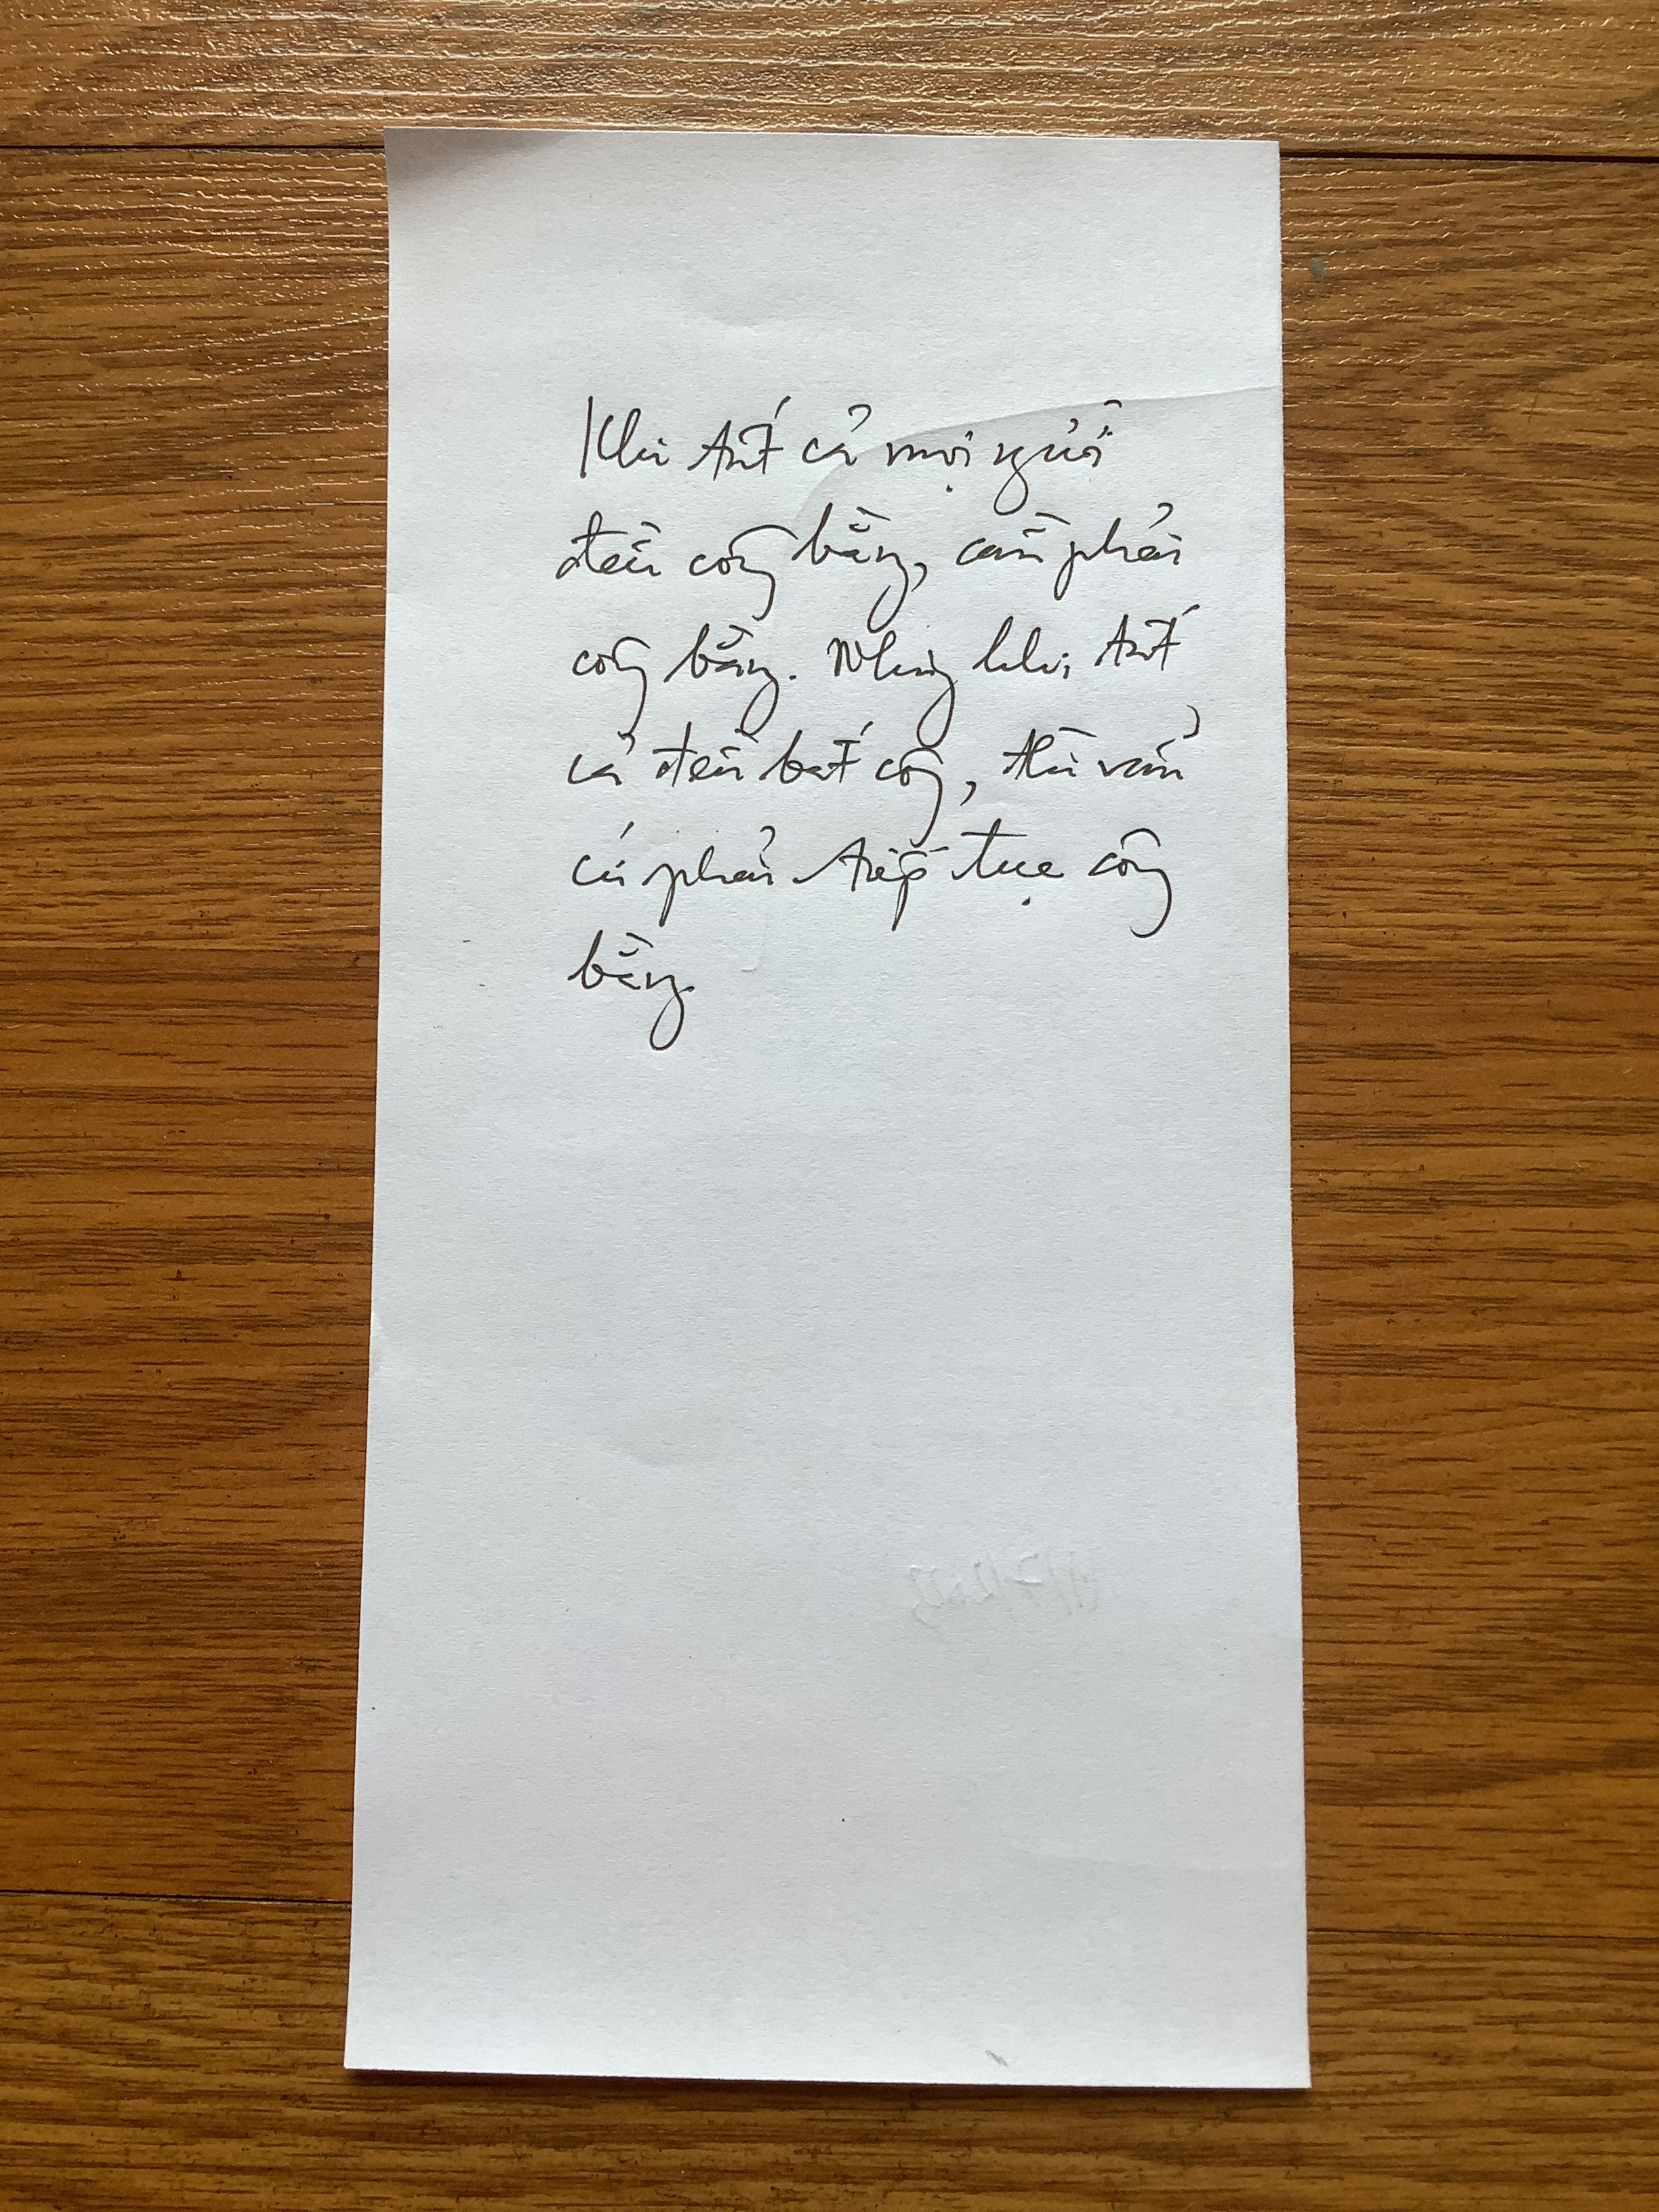 Khi tất cả mọi người
đều công bằng, cần phải
công bằng. Nhưng khi tất
cả đều bất công, thì vẫn
cứ phải tiếp tục công
bằng.